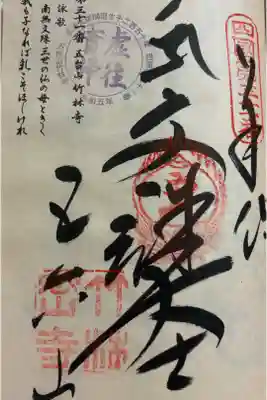 四国第三十一番
奉納
文殊大士
五台山
竹林
密寺
虚往
第三十一番 五台山 竹林寺
詠歌
南無文殊三世の仏の母ときく
我も子なれば乳こそほしけれ